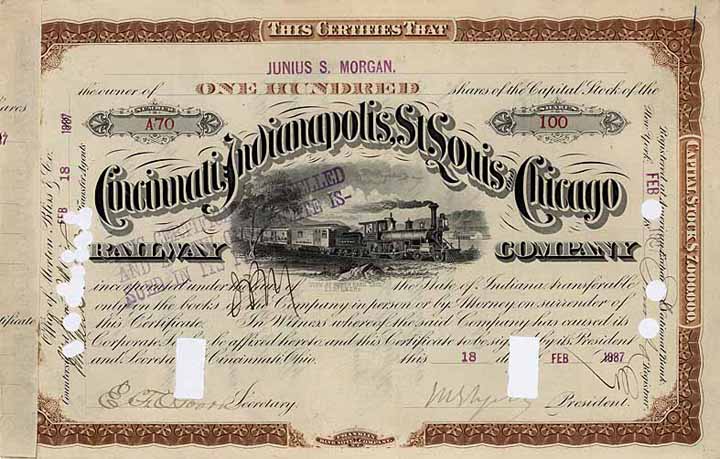 THIS CERTIFIES THAT
JUNIUS S. MORGAN.
the owner of ONE HUNDRED shares of the Capital Stock of the
NUMBER
A70
SHARES
100
Cincinnati, Indianapolis, St. Louis and Chicago
RAILWAY COMPANY
incorporated under the of the State of Indiana transferable
only on the books Company in person or by Attorney on surrender of
this Certificate. In Witness whereof the said Company has caused its
Corporate to be affixed hereto and this Certificate to be signed by its President
and Secretary Cincinnati, Ohio. this 18 day FEB 1887
Secretary.
President.
CAPITAL STOCK $7,000,000
Office of Morton Bliss & Co.
FEB 18 1887
Transfer Agents
Countersigned
Registered at
New York, FEB
National Bank
Registrar
CANCELLED
AND
FRANKLIN
BANK NOTE COMPANY
N.Y.